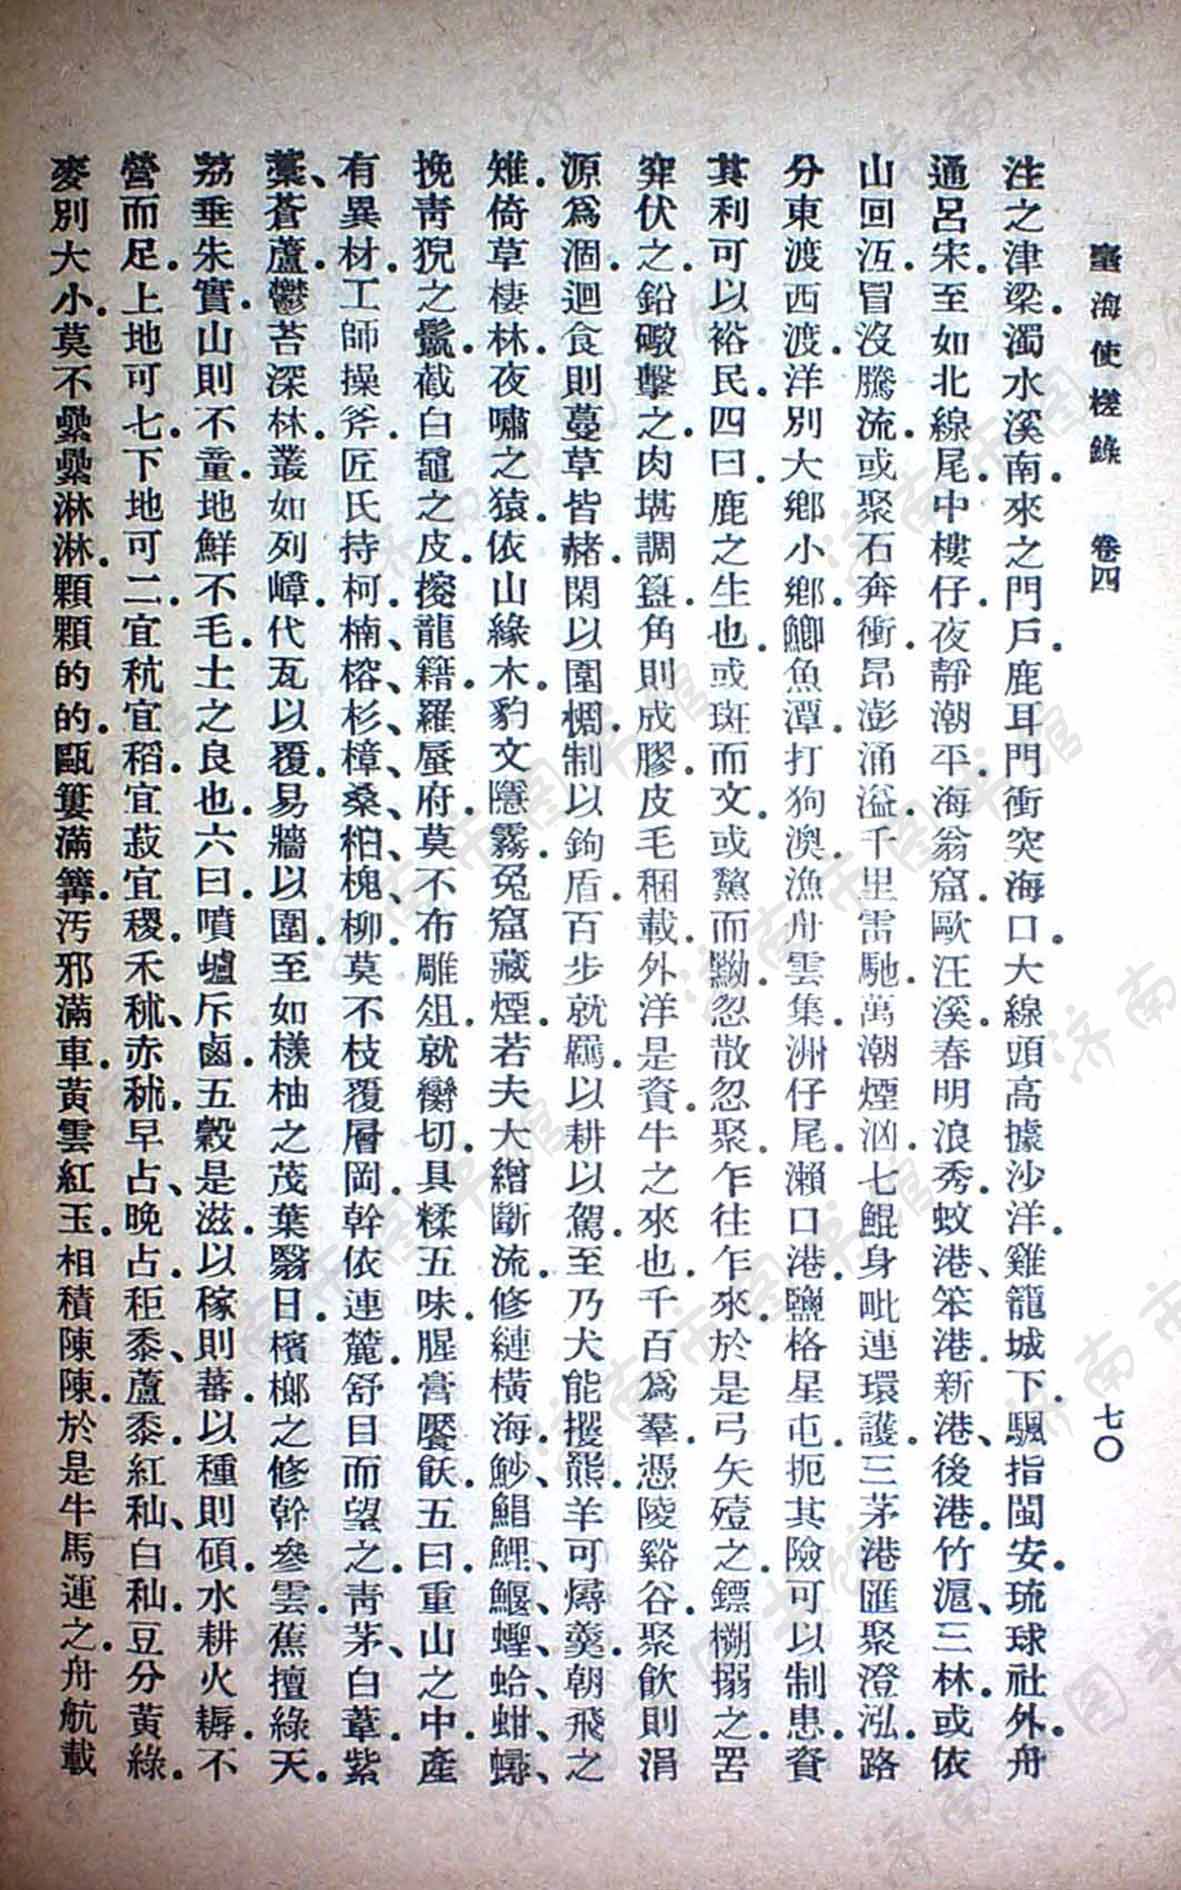 臺海使槎錄　卷四　七〇
注之津梁。濁水溪南。來之門戶。鹿耳門衝突海口。大線頭高據沙洋。雞籠城下。颿指閩安。琉球社外。舟
通呂宋。至如北線尾。中樓仔。夜靜潮平。海翁窟。歐汪溪。春明浪秀。蚊港、笨港。新港、後港。竹滬、三林。或依
山回沍。冒沒騰流。或聚石奔衝。昂澎涌溢。千里雷馳。萬潮煙汹。七鯤身毗連環護。三茅港匯聚澄泓。路
分東渡西渡。洋別大鄉小鄉。鯽魚潭。打狗澳。漁舟雲集。洲仔尾。瀨口港。鹽格星屯。扼其險可以制患。資
其利可以裕民。四曰。鹿之生也。或斑而文。或黧而黝。忽散忽聚。乍往乍來。於是弓矢殪之。鏢槊搦之。罟
穽伏之。鉛礮擊之。肉堪調簋。角則成膠。皮毛稛載。外洋是資。牛之來也。千百爲羣。憑陵谿谷。聚飲則涓
源爲涸。迴食則蔓草皆赭。閑以圍棝。制以鉤盾。百步就羈。以耕以駕。至乃犬能攫熊。羊可燖羹。朝飛之
雉。倚草棲林。夜嘯之猿。依山緣木。豹文隱霧。兔窟藏煙。若夫大繒斷流。修縺橫海。魦、鯧、鯉、鰋、蟶、蛤、蚶、蟳、
挽靑猊之鬣。截白黿之皮。㨶龍籍。羅蜃府。莫不布雕俎。就臠切。具糅五味。腥膏饜飫。五曰。重山之中。產
有異材。工師操斧。匠氏持柯。楠、榕、杉、樟、桑、柏、槐、柳。莫不枝覆層岡。幹依連麓。舒目而望之。靑茅、白葦。紫
藁、蒼蘆。鬱苔深林。叢如列嶂。代瓦以覆。易牆以圍。至如檨柚之茂葉翳日。檳榔之修幹參雲。蕉擅綠天。
荔垂朱實。山則不童。地鮮不毛。土之良也。六曰。噴壚斥鹵。五穀是滋。以稼則蕃。以種則碩。水耕火耨。不
營而足。上地可七。下地可二。宜秔宜稻。宜菽宜稷。禾秫、赤秫。早占、晚占。秬黍、蘆黍。紅秈、白秈。豆分黃綠。
麥別大小。莫不纍纍淋淋。顆顆的的。甌窶滿篝。汚邪滿車。黃雲紅玉。相積陳陳。於是牛馬運之。舟航載